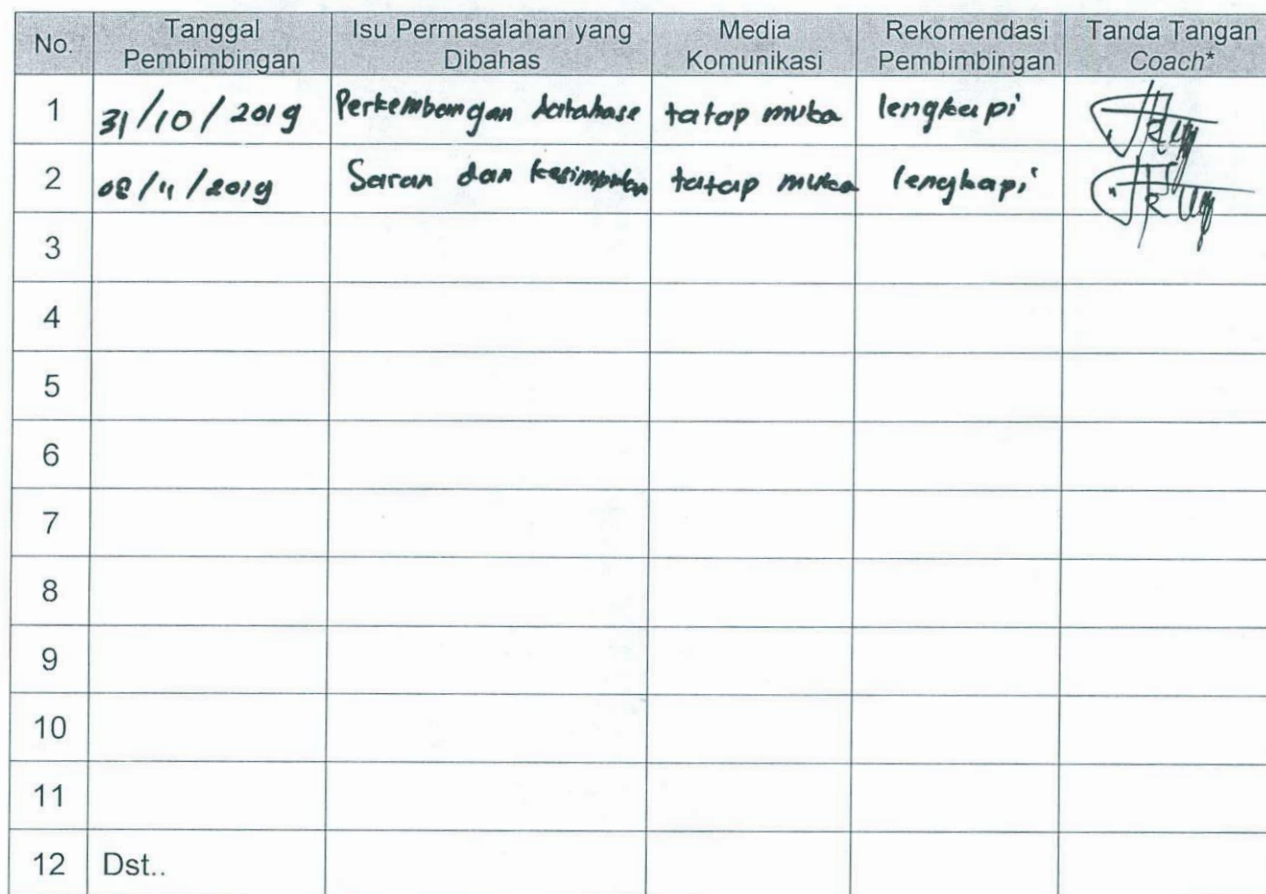 No. Tanggal Pembimbingan Isu Permasalahan yang Dibahas Media Komunikasi Rekomendasi Pembimbingan Tanda Tangan Coach*
1 31/10/2019 Perkembangan database tatap muka lengkapi
2 08/11/2019 Saran dan kesimpulan tatap muka lengkapi
3
4
5
6
7
8
9
10
11
12 Dst..